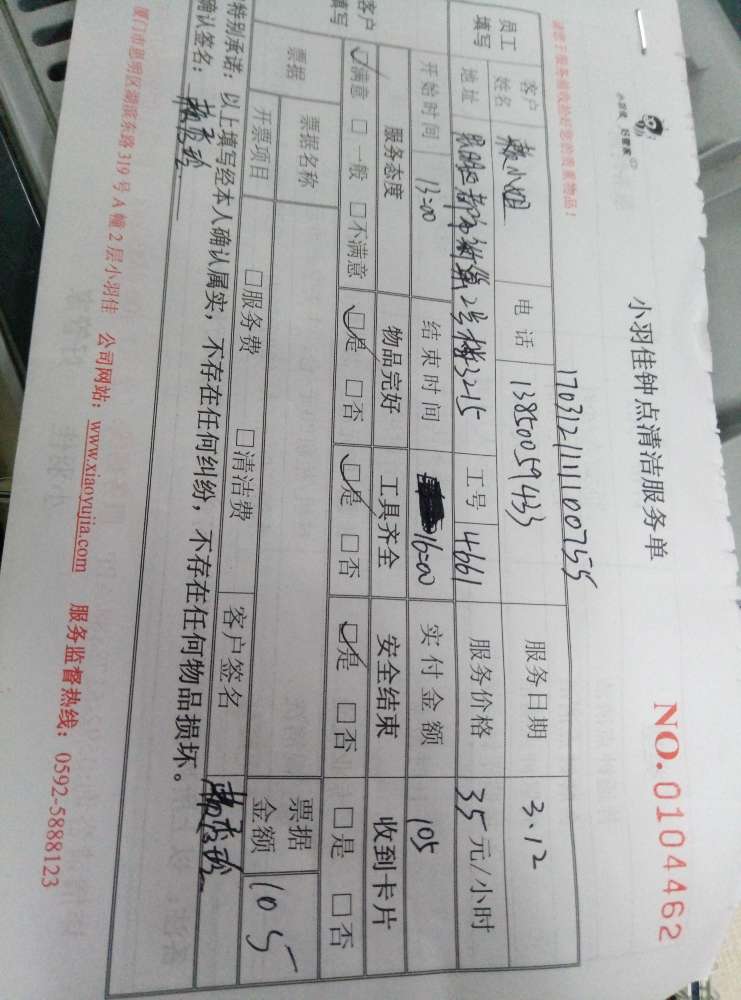 小羽佳 好管家
小羽佳钟点清洁服务单
NO. 0104462
170312111100755
请您于服务前收捡好您的贵重物品!
员工填写
客户姓名 赖小姐 电话 13850059433 服务日期 3.12
地址 2号楼3215 工号 4661 服务价格 35元/小时
开始时间 13:00 结束时间 16:00 实付金额 105
客户填写
服务态度 物品完好 工具齐全 安全结束 收到卡片
☑满意 □一般 □不满意 ☑是 □否 ☑是 □否 ☑是 □否 □是 □否
票据 票据名称 票据金额 105
开票项目 □服务费 □清洁费 客户签名
特别承诺:以上填写经本人确认属实,不存在任何纠纷,不存在任何物品损坏。
确认签名:
厦门市思明区湖滨东路319号A幢2层小羽佳 公司网站:www.xiaoyujia.com 服务监督热线:0592-5888123